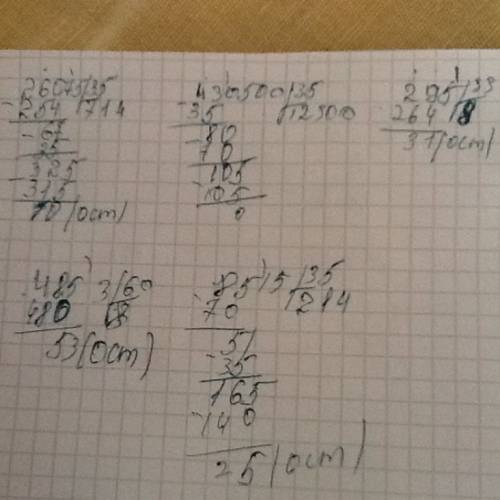 26075|35
-254 |714
-67
35
-325
-315
10(ост)
430500|35
-35 |12300
-80
70
-105
105
0
295|33
264|8
31(ост)
485 3|60
480 |8
53(ост)
85 15|35
-70 |1214
-51
35
165
-140
25(ост)